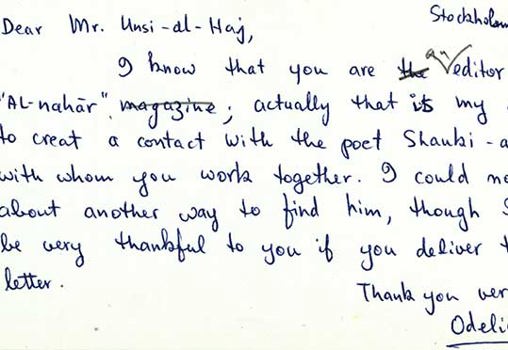 Stockholm
Dear Mr. Unsi-al-Haj,
I know that you are the an editor
"AL-nahār" magazine; actually that is my
to creat a contact with the poet Shauki-a
with whom you work together. I could no
about another way to find him, though
be very thankful to you if you deliver t
letter.
Thank you ver
Odeli